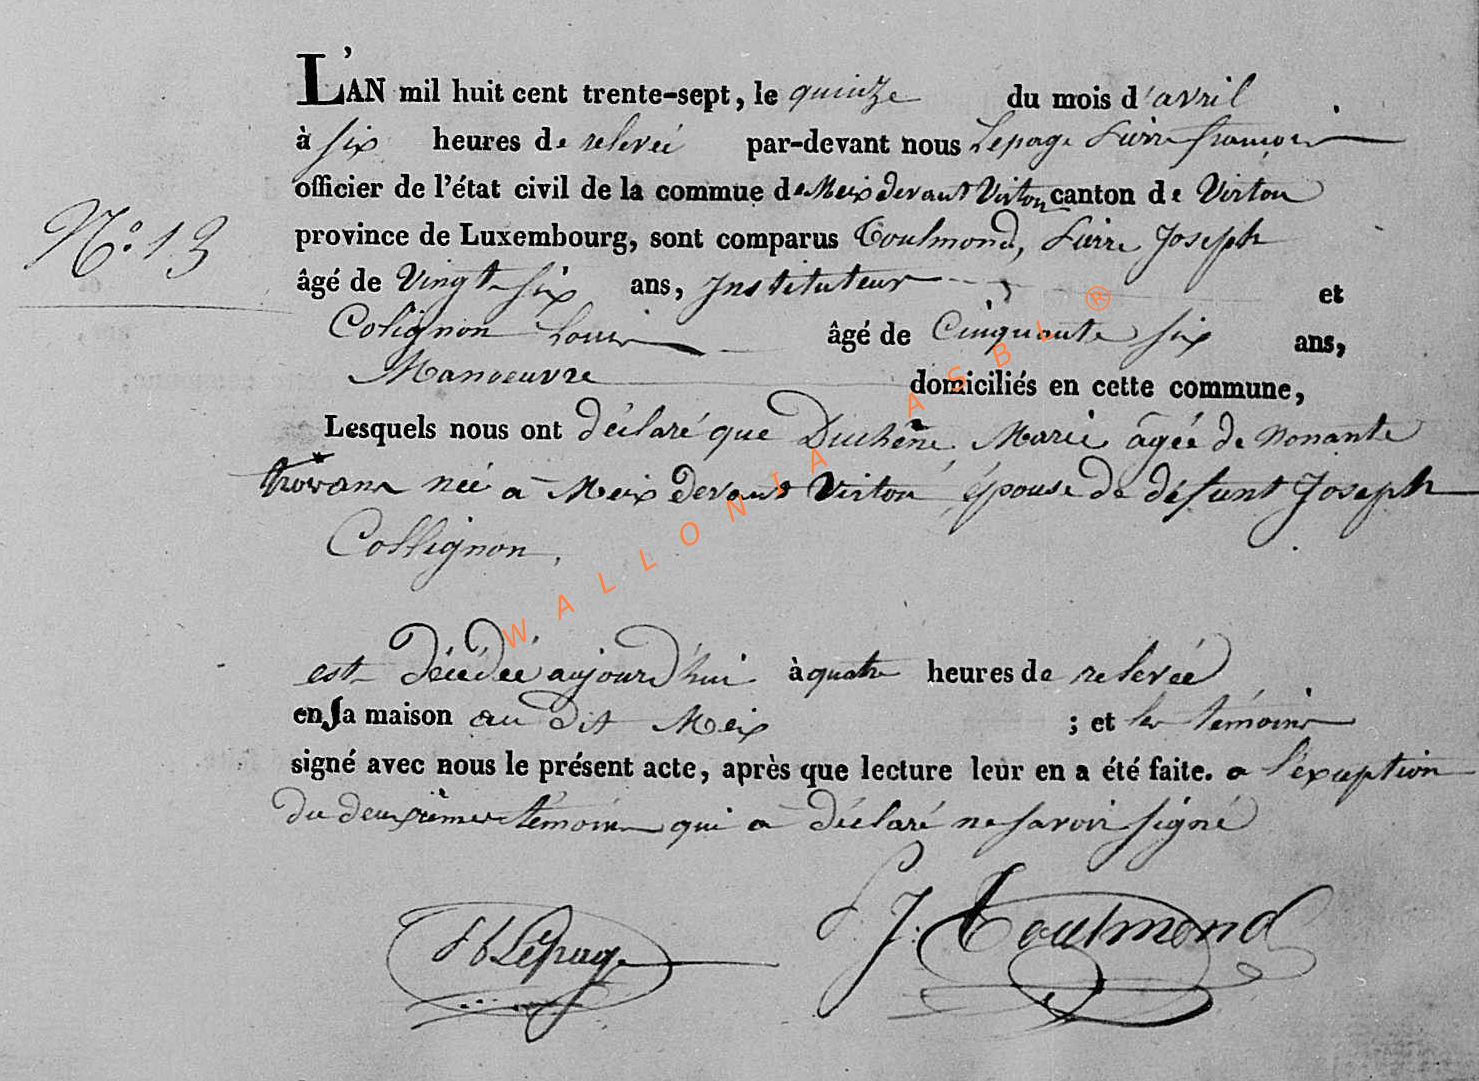 L'AN mil huit cent trente-sept, le quinze du mois d'avril
à six heures de relevée par-devant nous Lepage Pierre françois
officier de l'état civil de la commue de Meix devant Virton canton de Virton
N.º 13
province de Luxembourg, sont comparus Toulmond, Pierre Joseph
âgé de Vingt six ans, Instituteur et
Colignon Louis âgé de Cinquante six ans,
Manoeuvre domiciliés en cette commune,
Lesquels nous ont déclaré que Duchêne Marie âgée de nonante
trois ans née à Meix devant Virton épouse de défunt Joseph
Collignon,
WALLONIA ASBL ®
est décédée aujourd'hui à quatre heures de relevée
en sa maison au dit Meix ; et les témoins
signé avec nous le présent acte, après que lecture leur en a été faite. a l'exception
du deuxième témoin qui a déclaré ne savoir signé
Lepage P. J. Toulmond